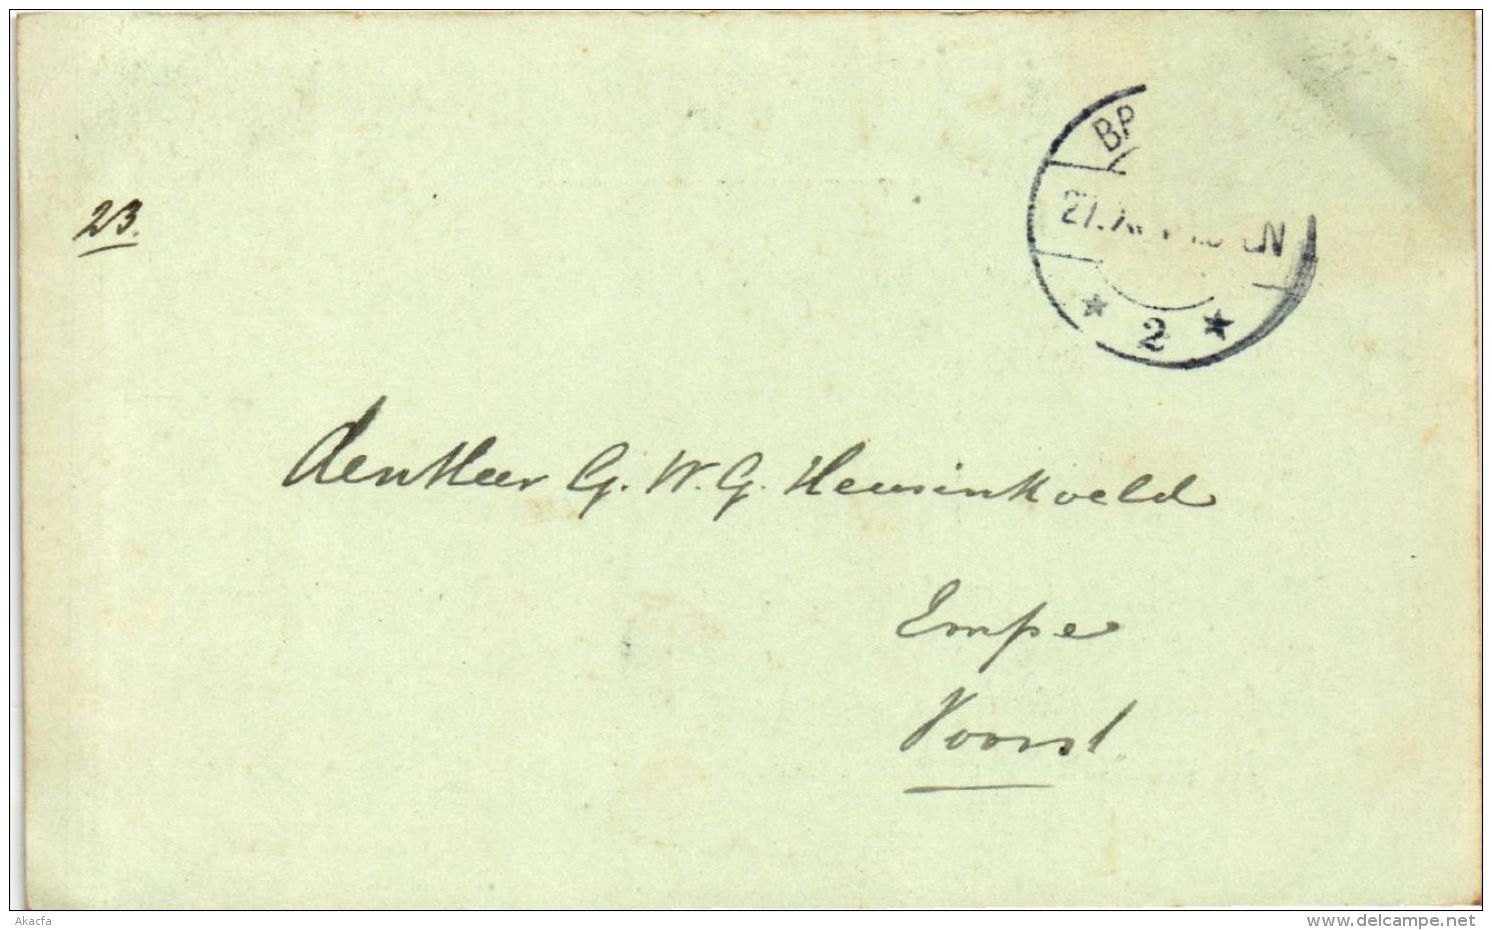 23.
den Heer G. W. G. Heusinkveld
Empe
Voorst.
27.
N
2
Akacfa
www.delcampe.net